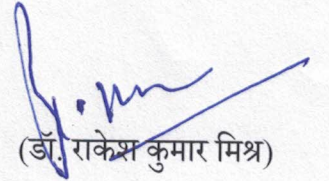 (डॉ. राकेश कुमार मिश्र)